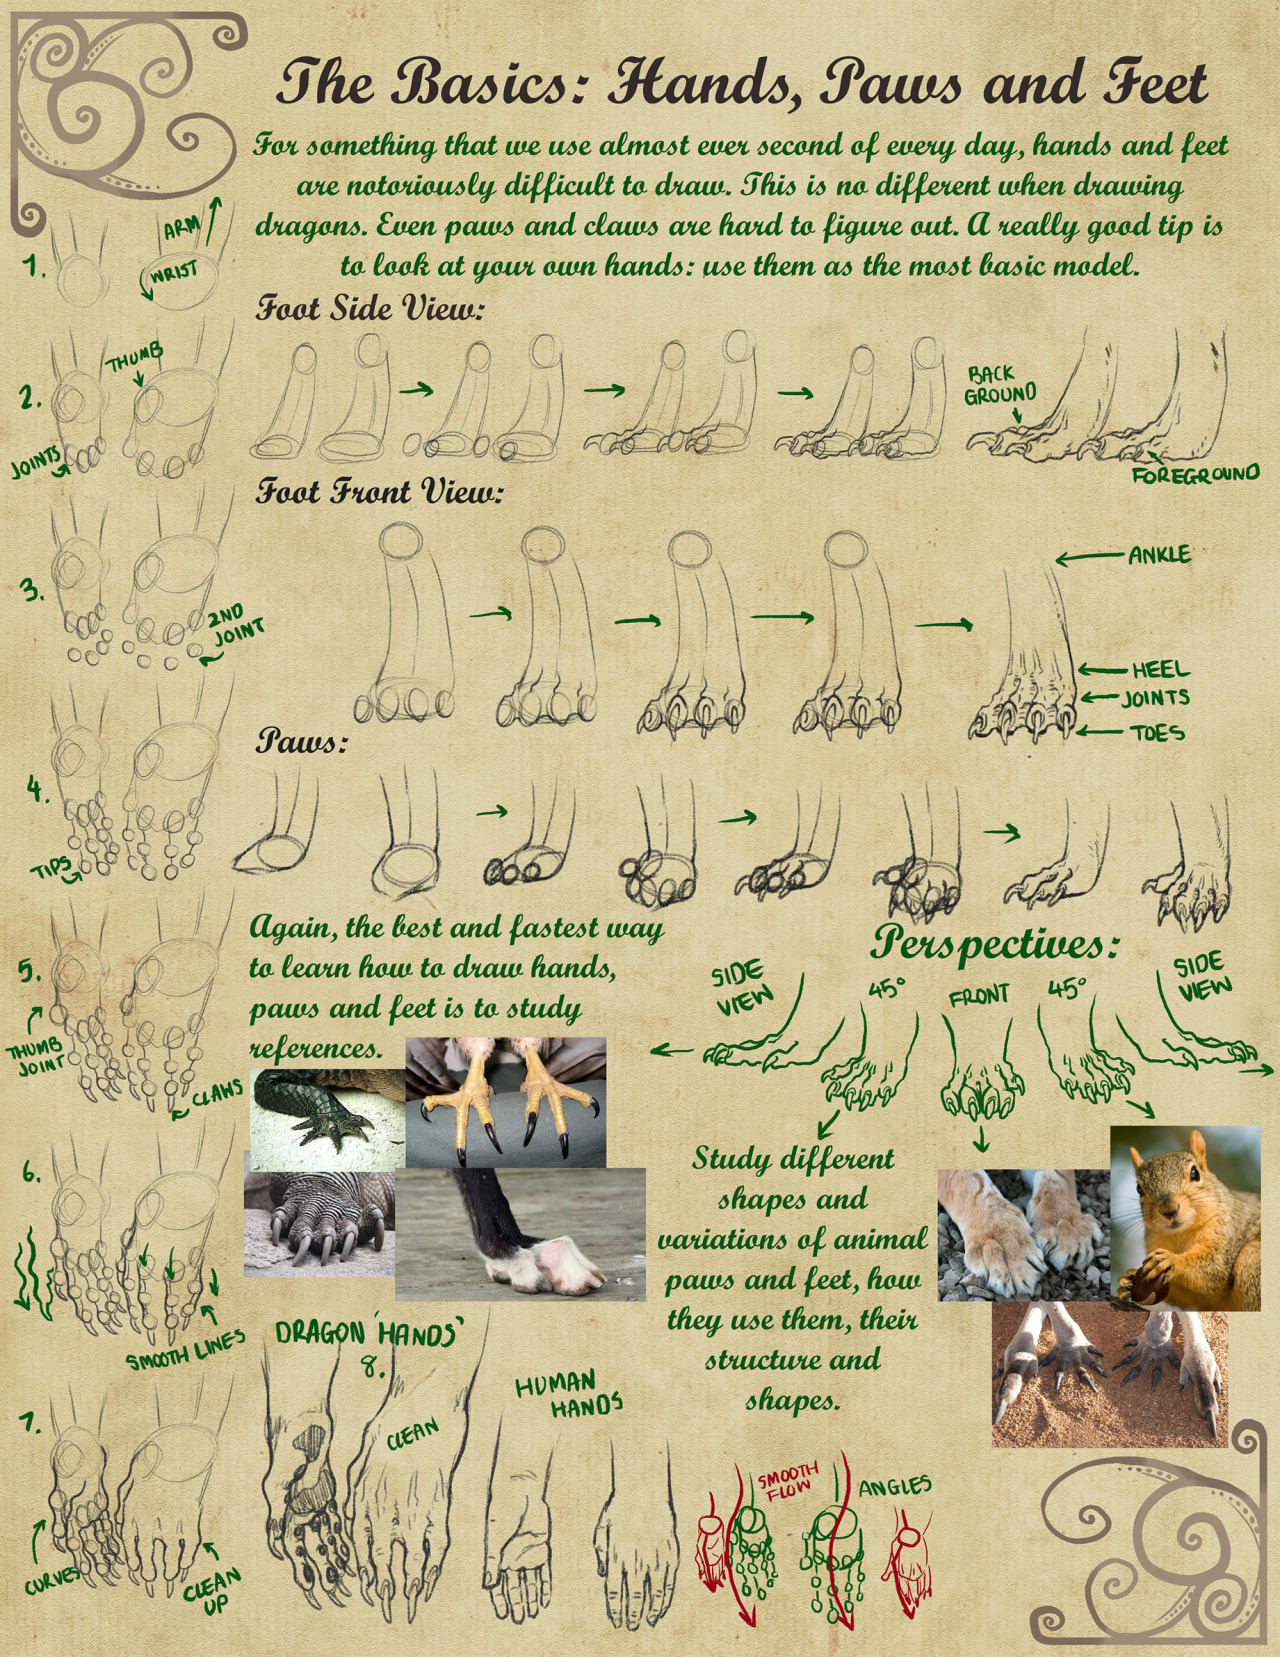 The Basics: Hands, Paws and Feet
For something that we use almost ever second of every day, hands and feet
are notoriously difficult to draw. This is no different when drawing
dragons. Even paws and claws are hard to figure out. A really good tip is
to look at your own hands: use them as the most basic model.
1.
ARM
WRIST
2.
THUMB
JOINTS
3.
2ND
JOINT
4.
TIPS
5.
THUMB
JOINT
CLAWS
6.
SMOOTH LINES
7.
CURVES
CLEAN
UP
Foot Side View:
BACK
GROUND
FOREGROUND
Foot Front View:
ANKLE
HEEL
JOINTS
TOES
Paws:
Again, the best and fastest way
to learn how to draw hands,
paws and feet is to study
references.
Perspectives:
SIDE
VIEW
45°
FRONT
45°
SIDE
VIEW
Study different
shapes and
variations of animal
paws and feet, how
they use them, their
structure and
shapes.
DRAGON 'HANDS'
8.
CLEAN
HUMAN
HANDS
SMOOTH
FLOW
ANGLES